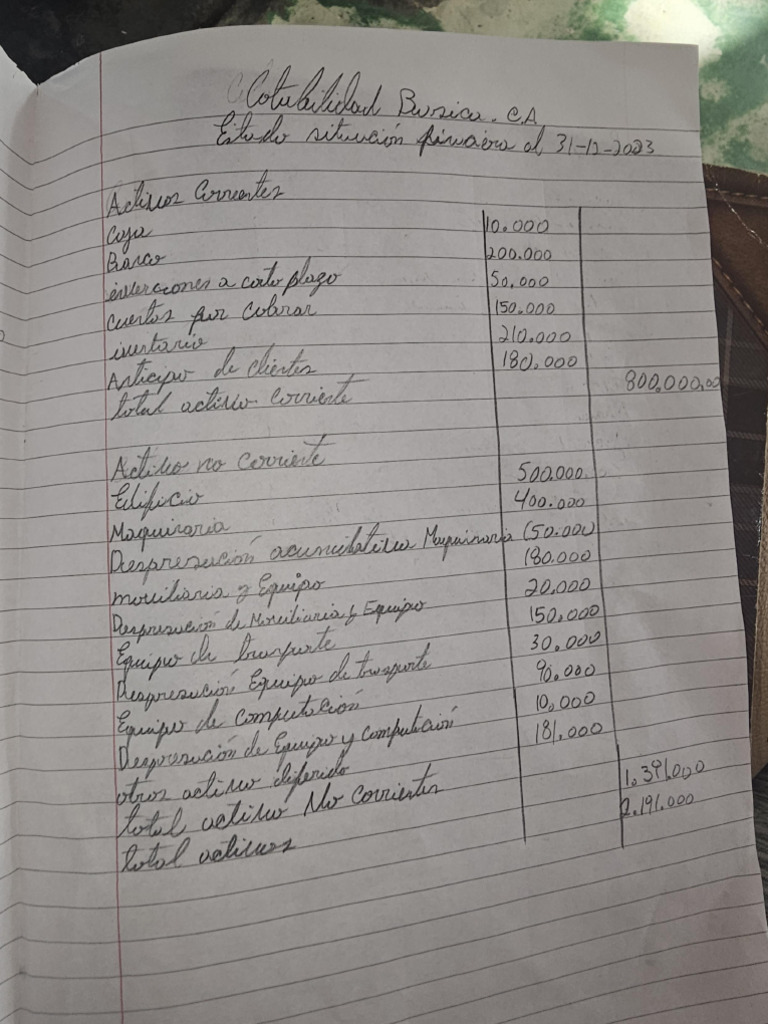 Cotubilidad Busica. C.A
Estado situación finnciera al 31-12-2023
Activos Corrientes
Caja 10.000
Banco 200.000
inverciones a corto plazo 50.000
cuentas por Cobrar 150.000
inventario 210.000
Anticipo de clientes 180.000
total activo corriente 800,000,00
Activo no corriente
Edificio 500.000
Maquinaria 400.000
Despresución acumulativa Maquinaria (50.000)
mouiliaria y Equipo 180.000
Despresución de Mouiliaria y Equipo 20.000
Equipo de trasporte 150.000
Despresución Equipo de trasporte 30.000
Equipo de Computación 90.000
Despresución de Equipo y computación 10.000
otros activo diferido 181.000
total activo No corrientes 1.391.000
total activos 2.191.000